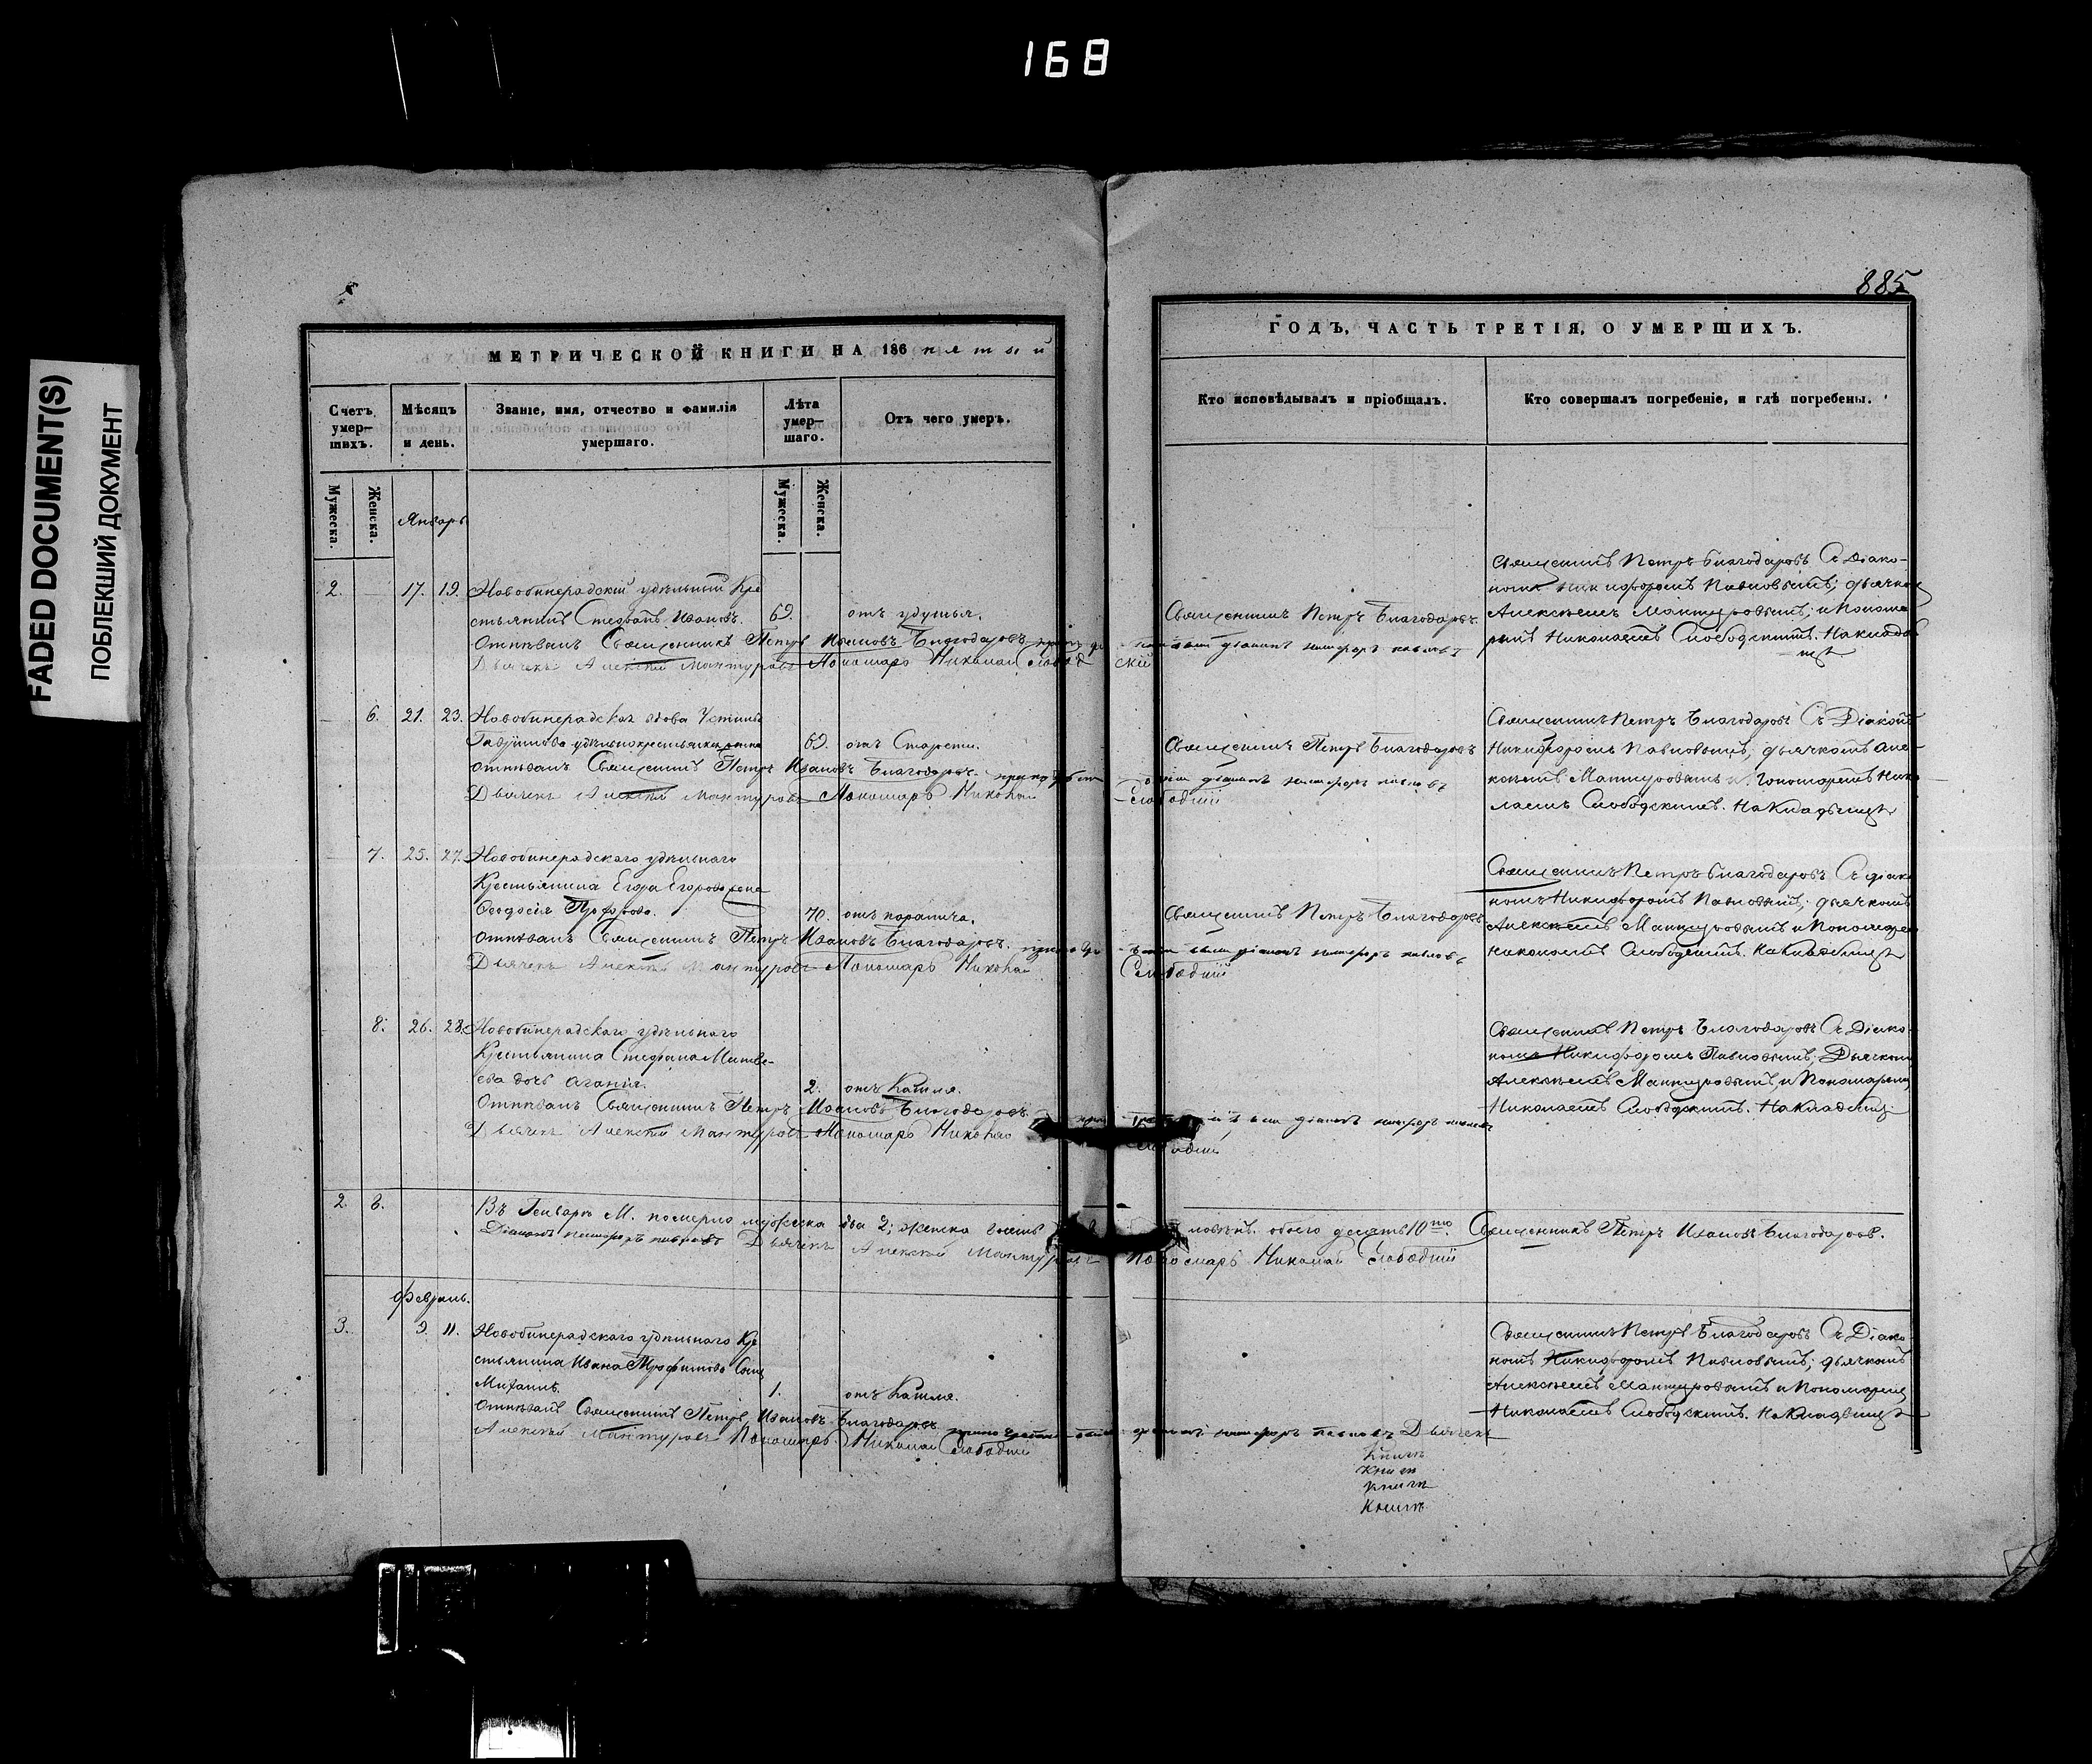 168
FADED DOCUMENT(S)
ПОБЛЕКШИЙ ДОКУМЕНТ
885
МЕТРИЧЕСКОЙ КНИГИ НА 186 пятый
ГОДЪ, ЧАСТЬ ТРЕТІЯ, О УМЕРШИХЪ.
Счетъ умер-шихъ.
Мѣсяцъ и день.
Званіе, имя, отчество и фамилія умершаго.
Лѣта умер-шаго.
Отъ чего умеръ.
Кто исповѣдывалъ и пріобщалъ.
Кто совершалъ погребеніе, и гдѣ погребены.
Мужеска.
Женска.
Январь
Мужеска.
Женска.
2. 17. 19. Новобинерадскій удѣльный Кре
стьянинъ Стефанъ Ивановъ. 69. отъ удушья.
Отпѣвалъ Священникъ Петръ Ивановъ Благодаровъ
Дьячекъ Алексѣй Мантуровъ Пономарь Николай Слобод
скій
Священникъ Петръ Благодаровъ.
діаконъ никифоръ павловъ
Священникъ Петръ Благодаровъ Съ Діако-
номъ Никифоромъ Павловымъ; дьячкомъ
Алексѣемъ Мантуровымъ; и Понома
ремъ Николаемъ Слободскимъ. На кладби
щѣ
6. 21. 23. Новобинерадская вдова Устинья
Гаврилова удѣльнокрестьянская 69. отъ Старости.
отпѣвалъ Священникъ Петръ Ивановъ Благодаровъ.
Дьячекъ Алексѣй Мантуровъ Пономарь Николай
Слободскій
Священникъ Петръ Благодаровъ
діаконъ никифоръ павловъ
Священникъ Петръ Благодаровъ Съ Діакономъ
Никифоромъ Павловымъ; дьячкомъ Але
ксѣемъ Мантуровымъ и Пономаремъ Нико
лаемъ Слободскимъ. На Кладбищѣ
7. 25. 27. Новобинерадскаго удѣльнаго
Крестьянина Егора Егорова жена
Феодосія 70. отъ паралича.
Отпѣвалъ Священникъ Петръ Ивановъ Благодаровъ.
Дьячекъ Алексѣй Мантуровъ Пономарь Николай
Слободскій
Священникъ Петръ Благодаровъ
діаконъ никифоръ павловъ
Священникъ Петръ Благодаровъ Съ діако
номъ Никифоромъ Павловымъ; дьячкомъ
Алексѣемъ Мантуровымъ и Пономаре
Николаемъ Слободскимъ. На кладбищѣ
8. 26. 28. Новобинерадскаго удѣльнаго
Крестьянина Стефана Матве-
ева дочь Агапія. 2. отъ Кашля.
Отпѣвалъ Священникъ Петръ Ивановъ Благодаровъ
Дьячекъ Алексѣй Мантуровъ Пономарь Николай
діаконъ никифоръ
Священникъ Петръ Благодаровъ Съ Діако-
номъ Никифоромъ Павловымъ; Дьячкомъ
Алексѣемъ Мантуровымъ, и Пономаремъ
Николаемъ Слободскимъ. На Кладбищѣ
2. 8. Въ Генварѣ М. померло мужеска два 2; женска восемь
обоего десять 10ть. Священникъ Петръ Ивановъ Благодаровъ.
Діаконъ никифоръ павловъ Дьячекъ Алексѣй Мантуровъ Пономарь Николай Слободскій
Февраль.
3. 9. 11. Новобинерадскаго удѣльнаго Кре
стьянина Ивана Трофимова Сынъ
Михаилъ. 1. отъ Кашля.
Отпѣвалъ Священникъ Петръ Ивановъ Благодаровъ
діаконъ никифоръ павловъ Дьячекъ
Алексѣй Мантуровъ Пономарь Николай Слободскій
Священникъ Петръ Благодаровъ Съ Діако-
номъ Никифоромъ Павловымъ; дьячкомъ
Алексѣемъ Мантуровымъ и Пономаремъ
Николаемъ Слободскимъ. На Кладбищѣ